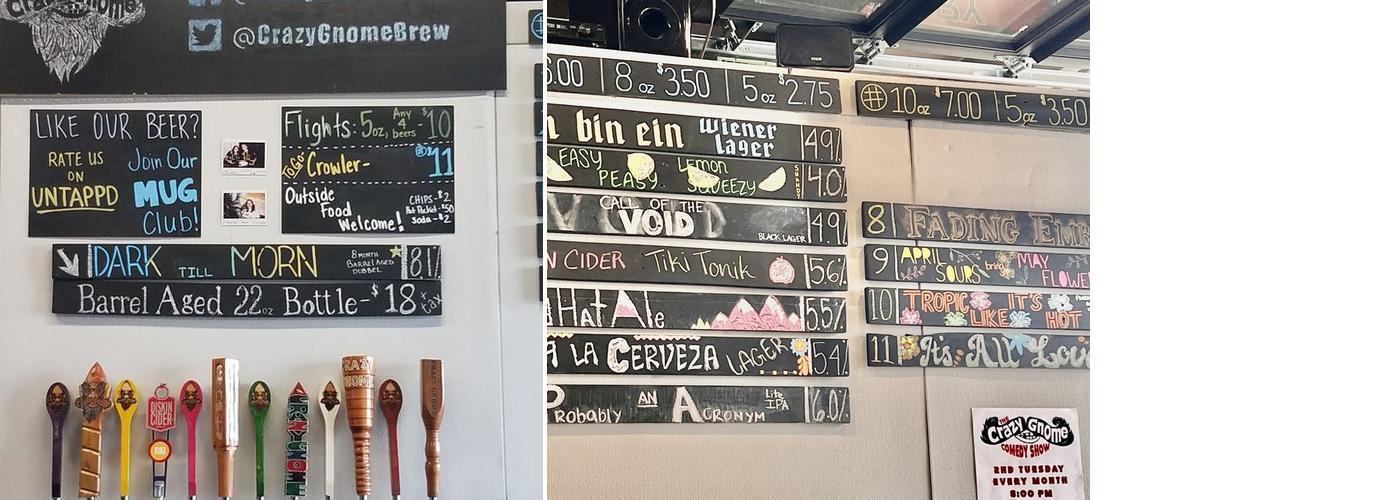 Crazy Gnome
@CrazyGnomeBrew
LIKE OUR BEER?
RATE US
ON
UNTAPPD
Join Our
MUG
Club!
Flights: 5oz, Any 4 beers - $10
TO GO Crowler - $11
Outside
Food
Welcome!
CHIPS-$2
Soda-$2
DARK TILL MORN
8 MONTH
BARREL AGED
DUBBEL
8.1%
Barrel Aged 22oz Bottle - $18 + tax
CRAZY
GNOME
DISKIN
CIDER
TIKI
.00 | 8 oz $3.50 | 5 oz $2.75
# 10 oz $7.00 | 5 oz $3.50
bin ein Wiener
lager 4.9%
EASY
PEASY Lemon
SQUEEZY SHANDY 4.0%
CALL OF THE
VOID BLACK LAGER 4.9%
N CIDER Tiki Tonik 5.6%
Hat Ale 5.5%
LA CERVEZA LAGER 5.4%
Probably AN Acronym Lite
IPA 6.0%
8 FADING EMB
9 APRIL
SOURS bring MAY
FLOWE
10 TROPIC
LIKE IT'S
HOT
11 It's All Lov
THE
Crazy Gnome
COMEDY SHOW
2ND TUESDAY
EVERY MONTH
8:00 PM